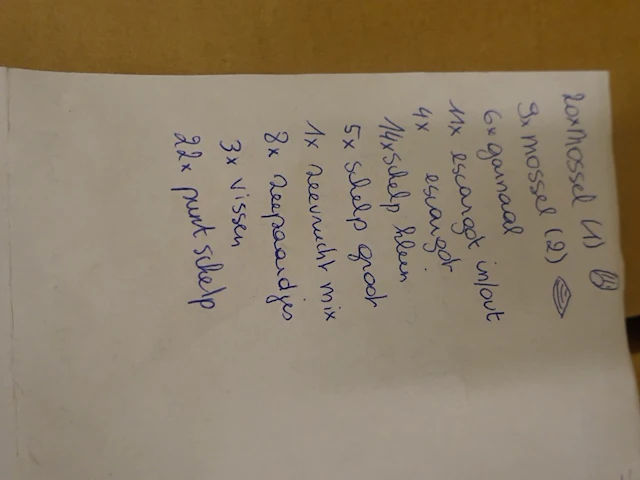 20x mossel (1)
9x mossel (2)
6x garnaal
11x escargot in/out
4x escargot
14x schelp klein
5x schelp groot
1x zeevrucht mix
8x zeepaardjes
3x vissen
22x punt schelp